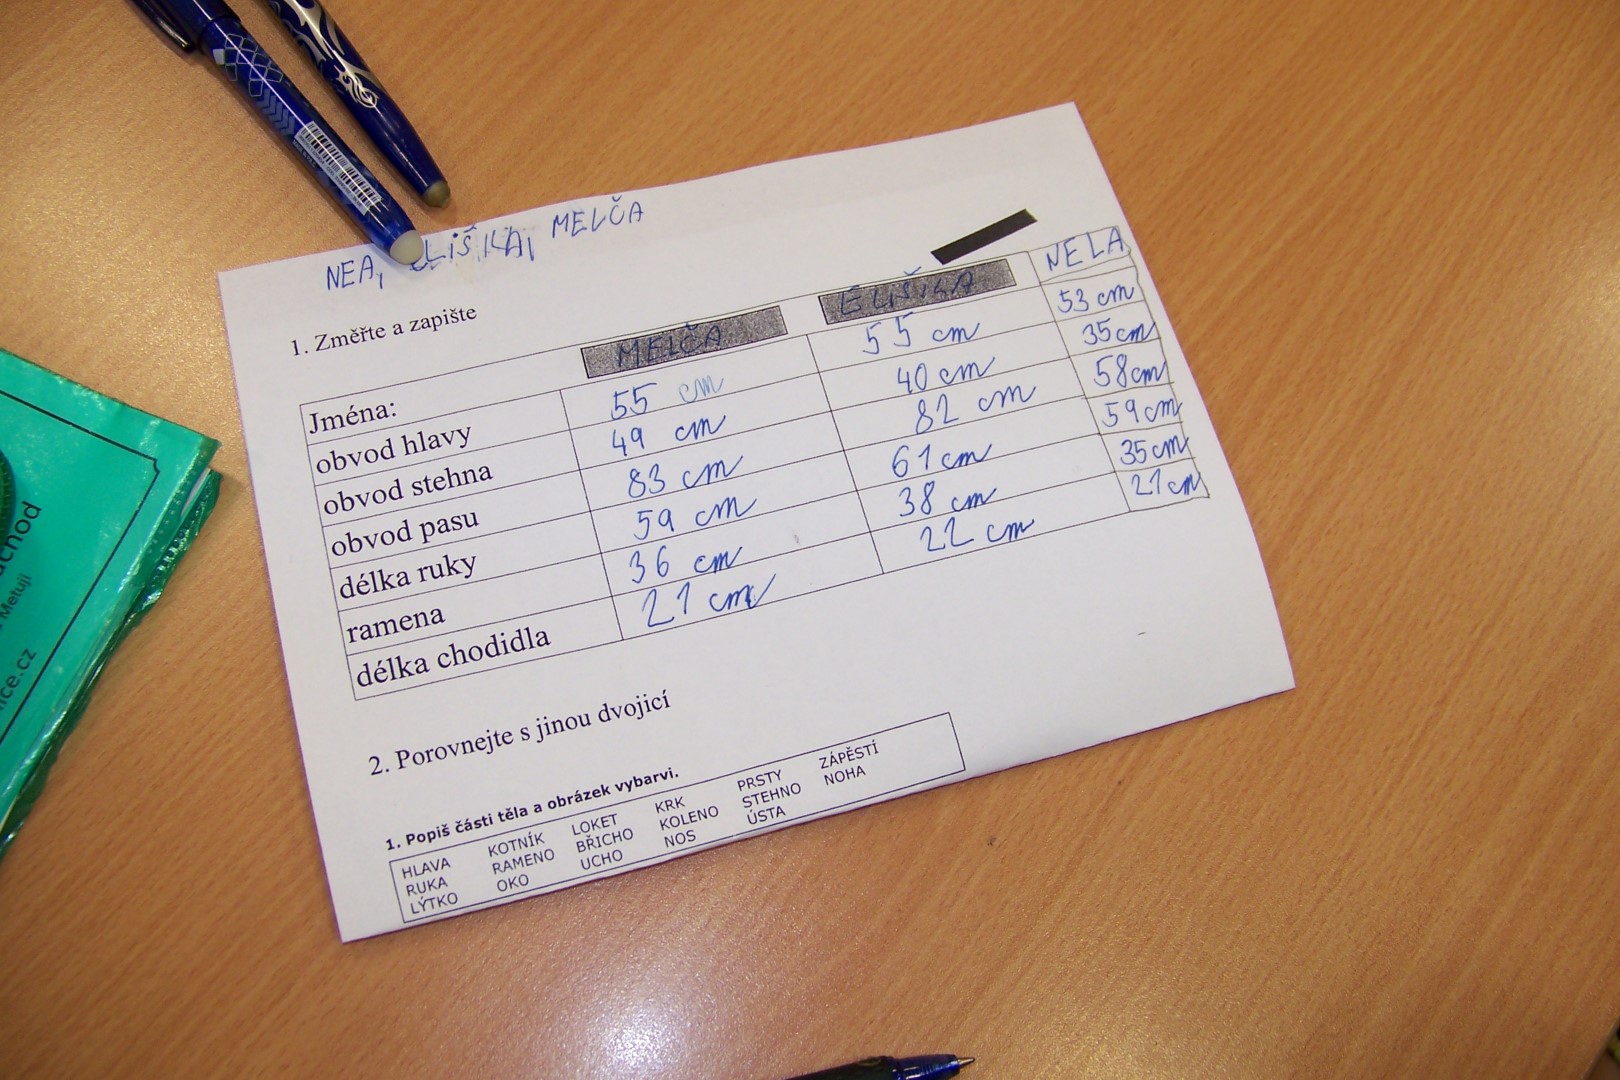 NEA, ELIŠKA, MELČA
1. Změřte a zapište
Jména: MELČA ELIŠKA NELA
obvod hlavy 55 cm 55 cm 53 cm
obvod stehna 49 cm 40 cm 35 cm
obvod pasu 83 cm 82 cm 58 cm
délka ruky 59 cm 61 cm 59 cm
ramena 36 cm 38 cm 35 cm
délka chodidla 21 cm 22 cm 21 cm
2. Porovnejte s jinou dvojicí
1. Popiš části těla a obrázek vybarvi.
HLAVA KOTNÍK LOKET KRK PRSTY ZÁPĚSTÍ
RUKA RAMENO BŘICHO KOLENO STEHNO NOHA
LÝTKO OKO UCHO NOS ÚSTA
Metují